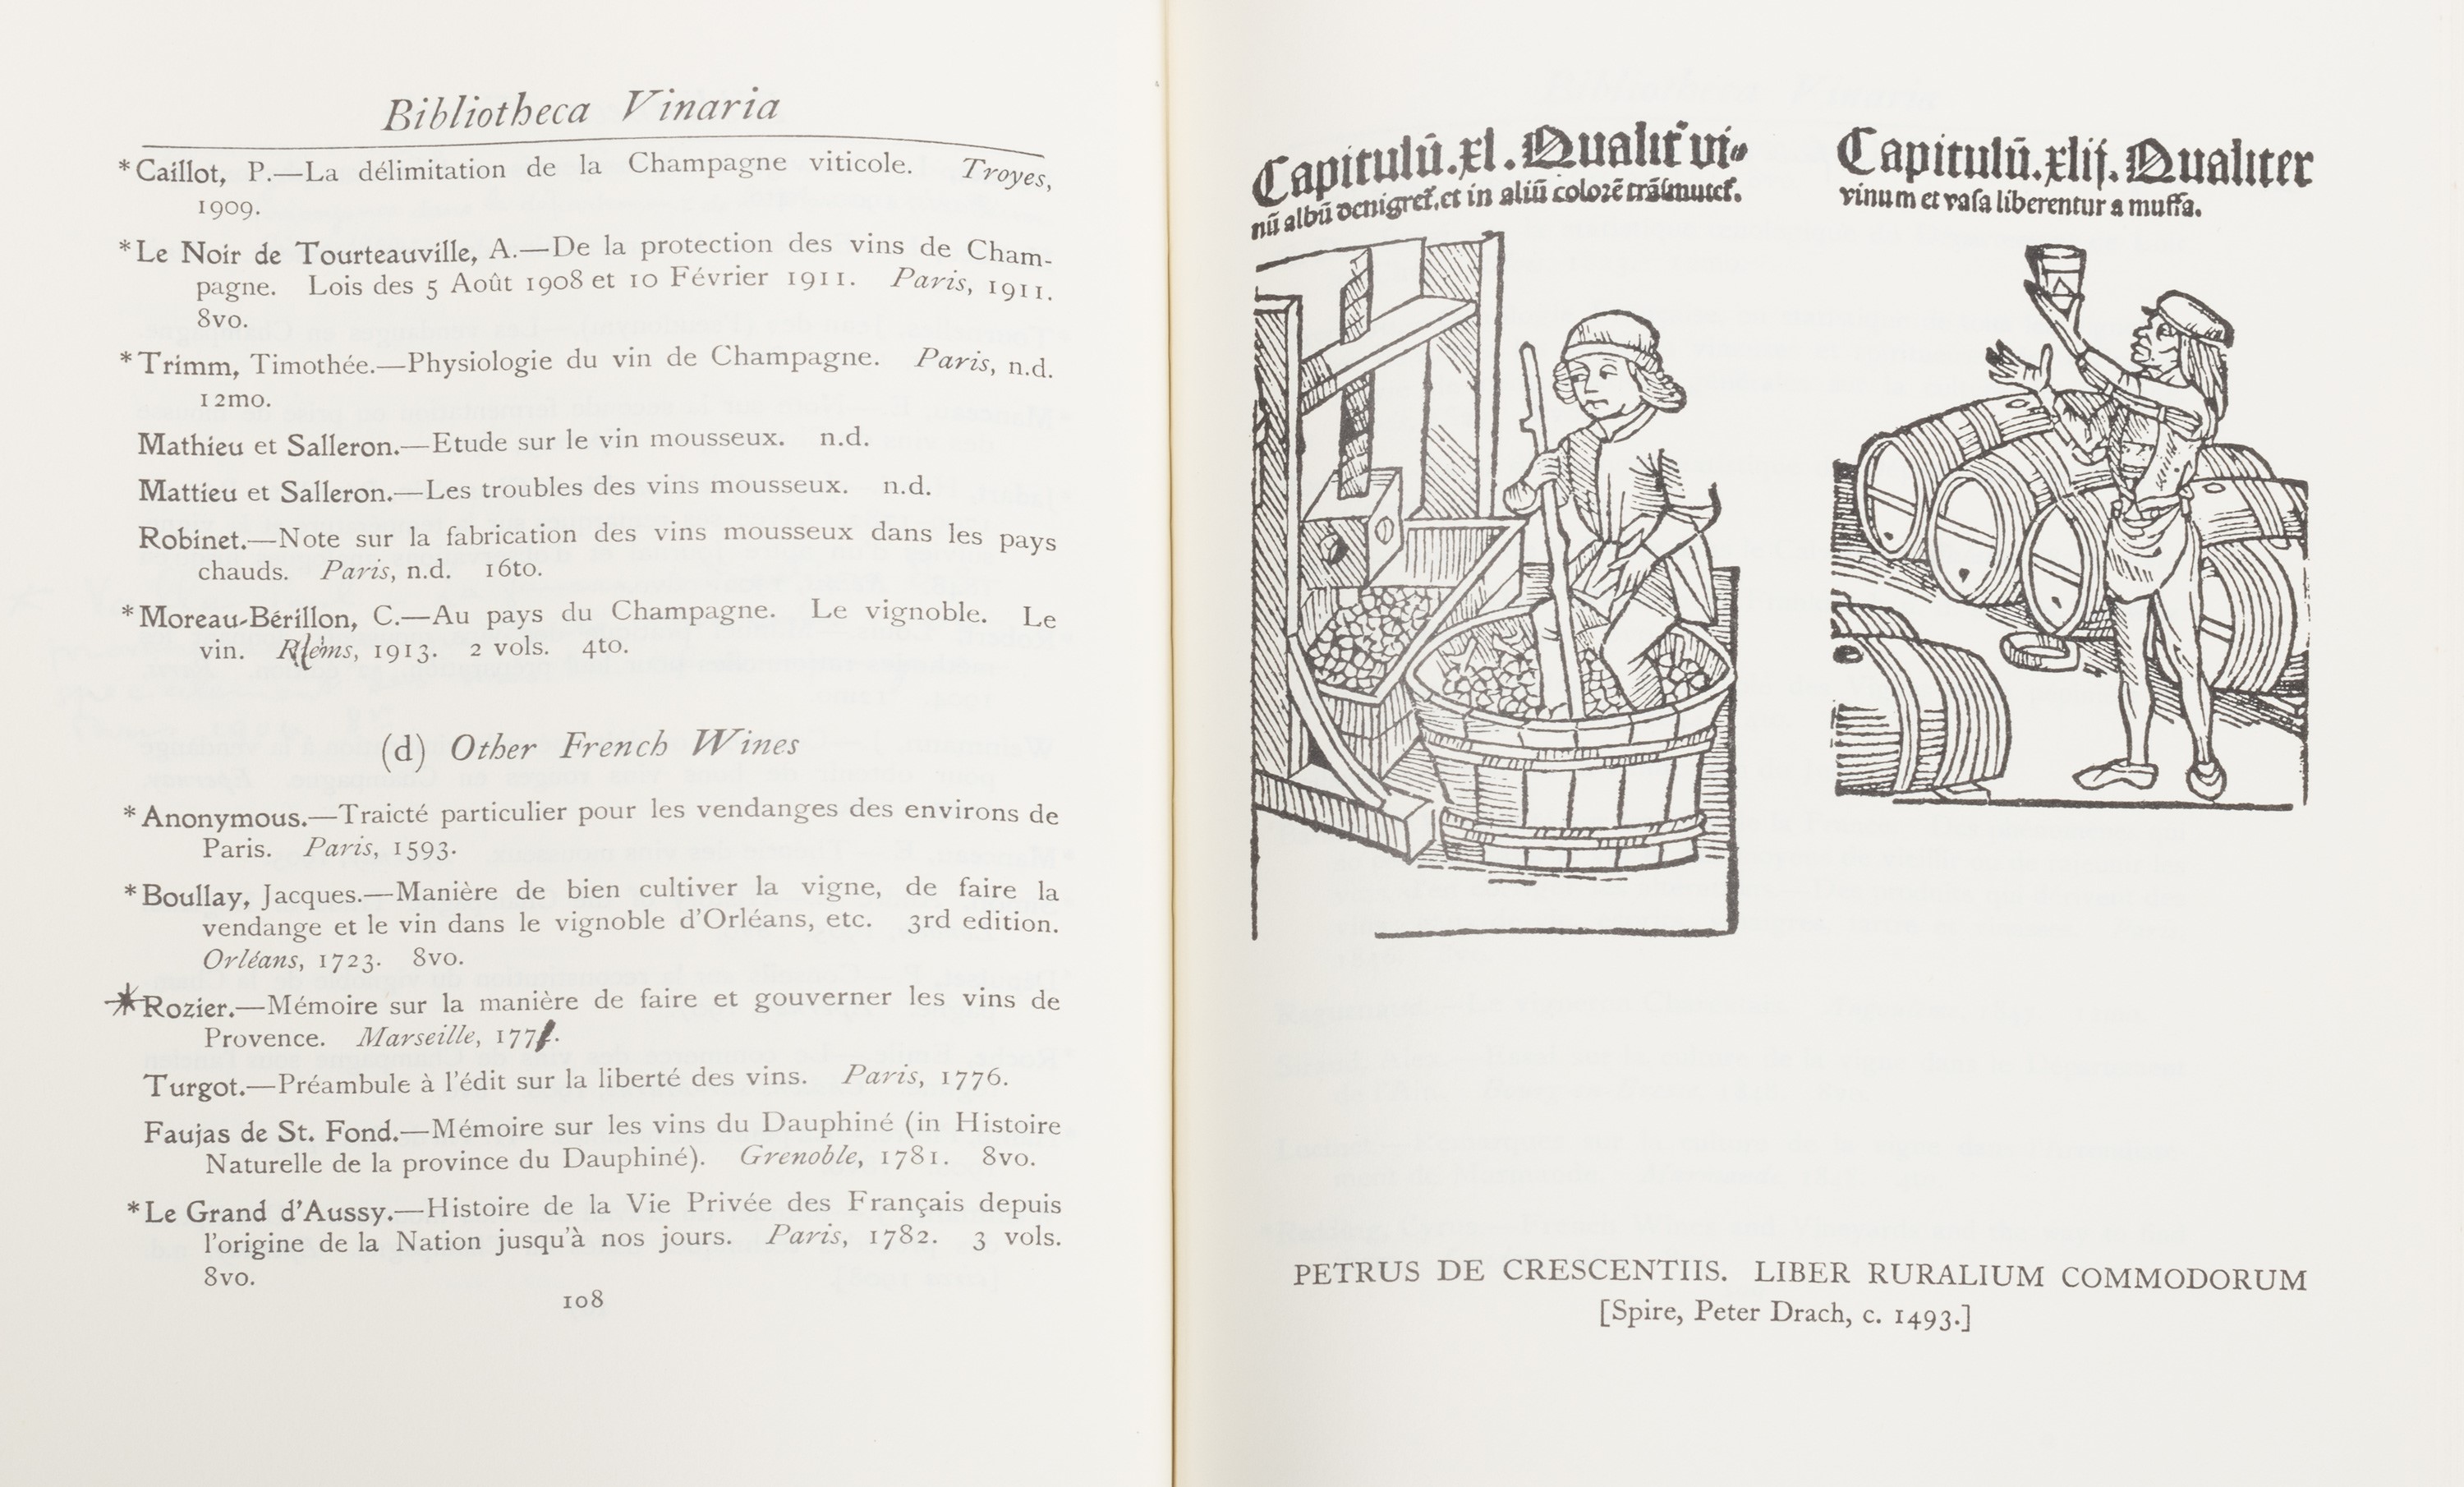 Bibliotheca Vinaria
*Caillot, P.—La délimitation de la Champagne viticole. Troyes,
1909.
*Le Noir de Tourteauville, A.—De la protection des vins de Cham-
pagne. Lois des 5 Août 1908 et 10 Février 1911. Paris, 1911.
8vo.
*Trimm, Timothée.—Physiologie du vin de Champagne. Paris, n.d.
12mo.
Mathieu et Salleron.—Etude sur le vin mousseux. n.d.
Mattieu et Salleron.—Les troubles des vins mousseux. n.d.
Robinet.—Note sur la fabrication des vins mousseux dans les pays
chauds. Paris, n.d. 16to.
*Moreau-Bérillon, C.—Au pays du Champagne. Le vignoble. Le
vin. 1913. 2 vols. 4to.
(d) Other French Wines
*Anonymous.—Traicté particulier pour les vendanges des environs de
Paris. Paris, 1593.
*Boullay, Jacques.—Manière de bien cultiver la vigne, de faire la
vendange et le vin dans le vignoble d'Orléans, etc. 3rd edition.
Orléans, 1723. 8vo.
*Rozier.—Mémoire sur la manière de faire et gouverner les vins de
Provence. Marseille,
Turgot.—Préambule à l'édit sur la liberté des vins. Paris, 1776.
Faujas de St. Fond.—Mémoire sur les vins du Dauphiné (in Histoire
Naturelle de la province du Dauphiné). Grenoble, 1781. 8vo.
*Le Grand d'Aussy.—Histoire de la Vie Privée des Français depuis
l'origine de la Nation jusqu'à nos jours. Paris, 1782. 3 vols.
8vo.
108
Capitulū.xl.Qualit̄ vi⸗
nū albū denigret̄.et in aliū colorē trāsmutet̄.
Capitulū.xlij.Qualiter
vinum et vasa liberentur a muffa.
PETRUS DE CRESCENTIIS. LIBER RURALIUM COMMODORUM
[Spire, Peter Drach, c. 1493.]